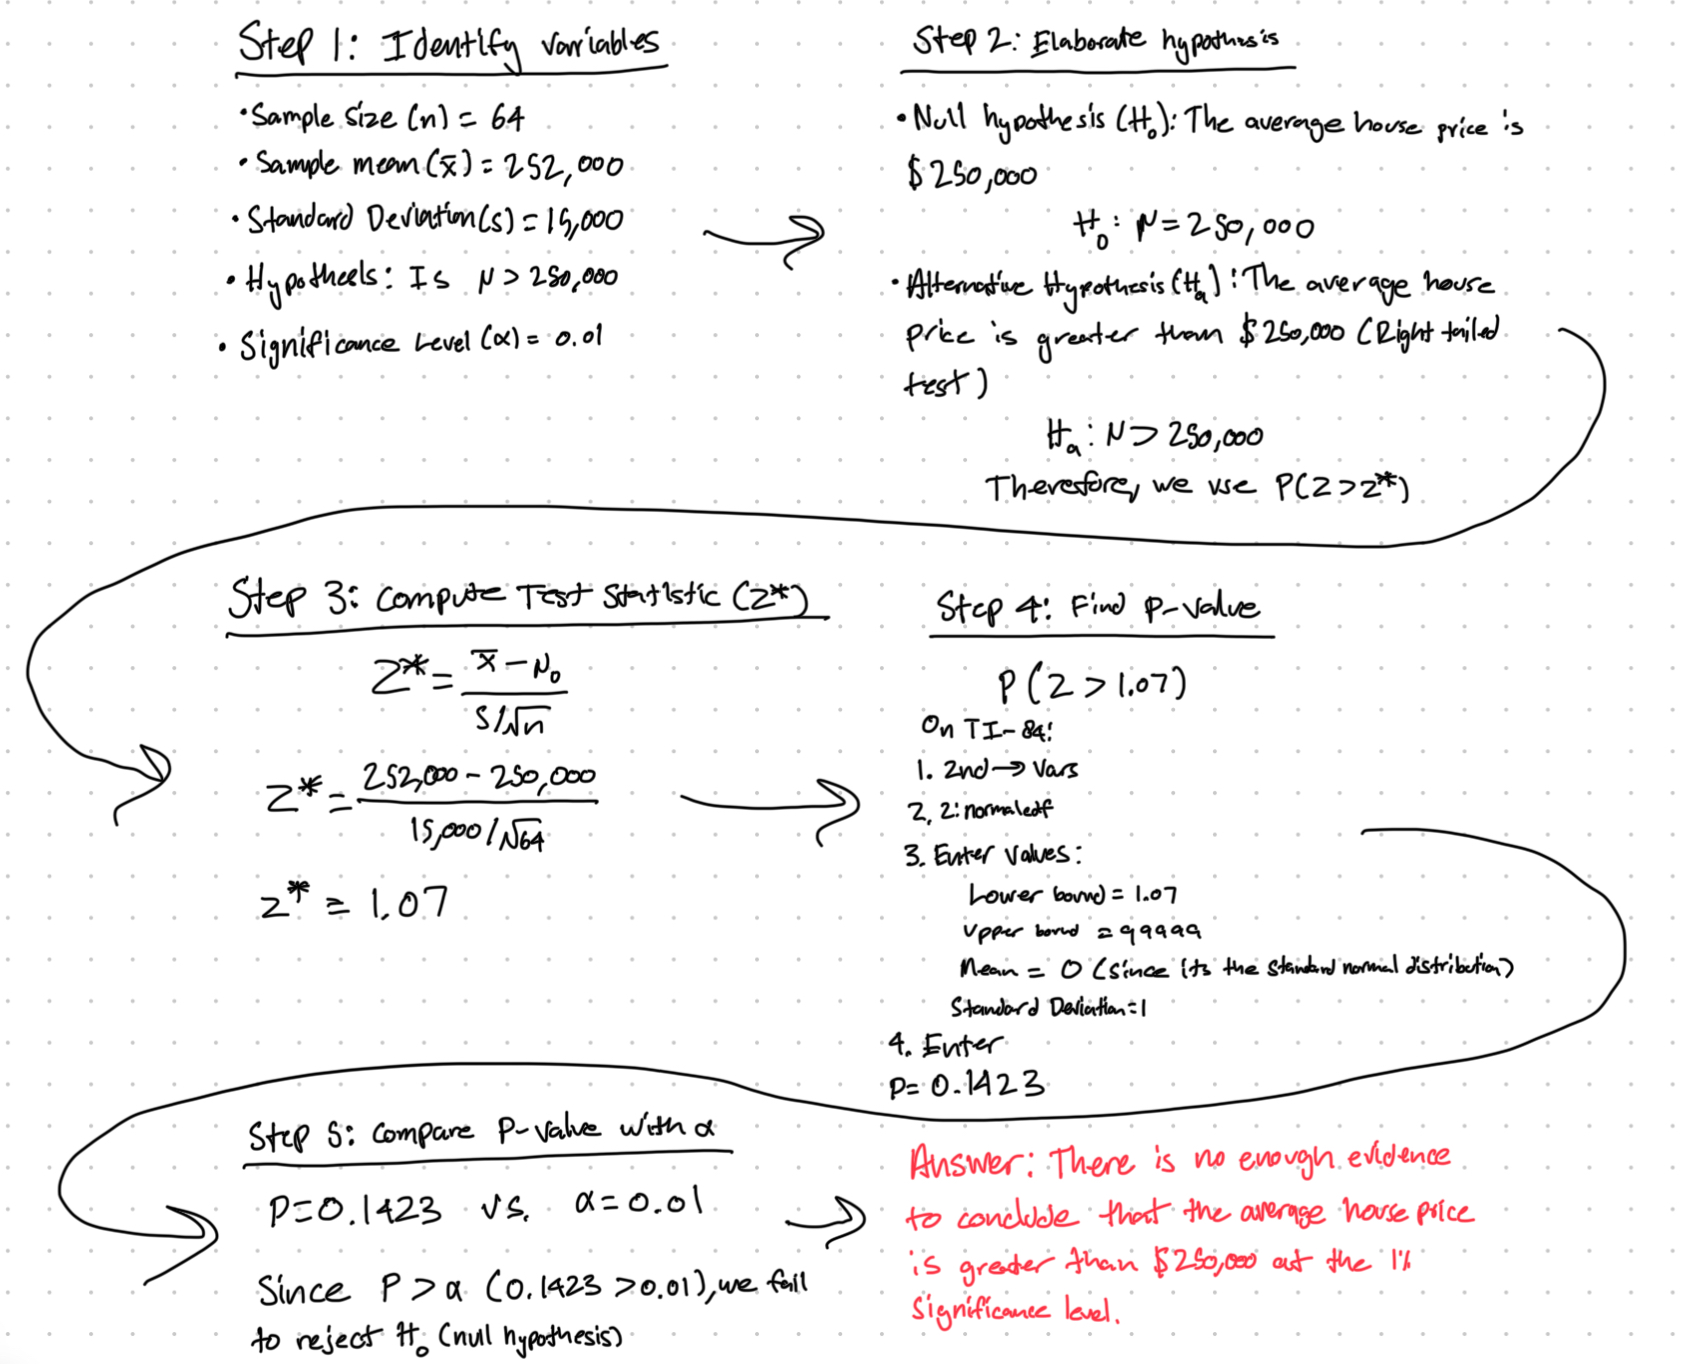 Step 1: Identify variables
• Sample size (n) = 64
• Sample mean (x̄) = 252,000
• Standard Deviation (s) = 15,000
• Hypothesis: Is μ > 250,000
• Significance Level (α) = 0.01
Step 2: Elaborate hypothesis
• Null hypothesis (H₀): The average house price is
$250,000
H₀: μ = 250,000
• Alternative Hypothesis (Hₐ): The average house
price is greater than $250,000 (Right tailed
test)
Hₐ: μ > 250,000
Therefore, we use P(Z > z*)
Step 3: Compute Test Statistic (Z*)
Z* = x̄ - μ₀ / s/√n
Z* = 252,000 - 250,000 / 15,000/√64
z* = 1.07
Step 4: Find P-value
P(Z > 1.07)
On TI-84:
1. 2nd → Vars
2. 2: normalcdf
3. Enter Values:
Lower bound = 1.07
Upper bound = 99999
Mean = 0 (since its the standard normal distribution)
Standard Deviation = 1
4. Enter
P = 0.1423
Step 5: Compare P-value with α
P = 0.1423 vs. α = 0.01
Since P > α (0.1423 > 0.01), we fail
to reject H₀ (null hypothesis)
Answer: There is no enough evidence
to conclude that the average house price
is greater than $250,000 at the 1%
significance level.